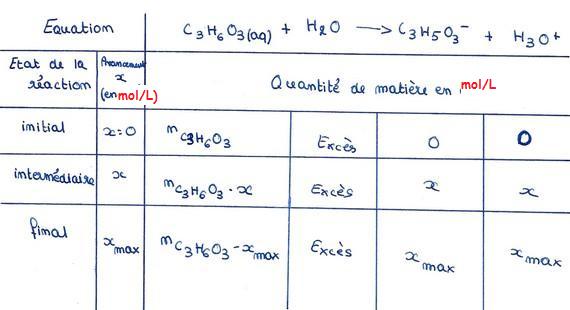 Equation C₃H₆O₃(aq) + H₂O → C₃H₅O₃⁻ + H₃O⁺
Etat de la réaction Avancement x (en mol/L) Quantité de matière en mol/L
initial x=0 ⁿC₃H₆O₃ Excès 0 0
intermédiaire x ⁿC₃H₆O₃ - x Excès x x
final xmax ⁿC₃H₆O₃ - xmax Excès xmax xmax